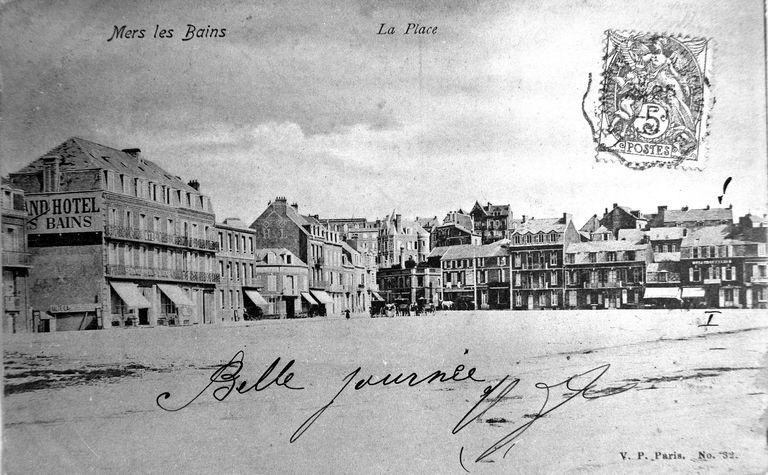 Mers les Bains
La Place
5
POSTES
ND HOTEL
S BAINS
I
Belle journée
V. P. Paris. No. 32.